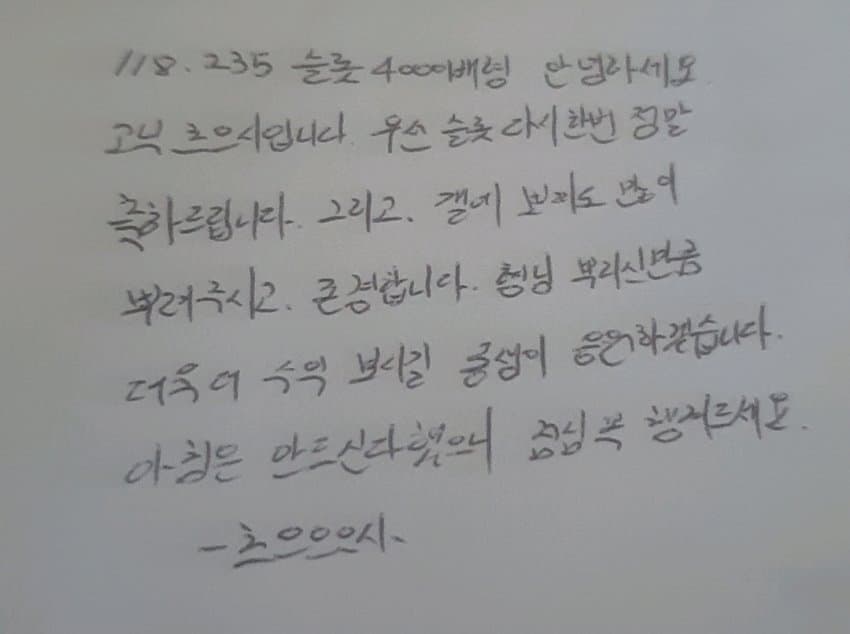 118.235 슬롯 4000배형 안녕하세요
고닉 초으시입니다. 우선 슬롯 다시한번 정말
축하드립니다. 그리고. 갤에 보지도 많이
뿌려주시고. 존경합니다. 형님 뿌리신만큼
더욱 더 수익 보시길 긍섬이 응원하겠습니다.
아침은 안드신다했으니 점심 꼭 챙겨드세요.
-초으으으시-